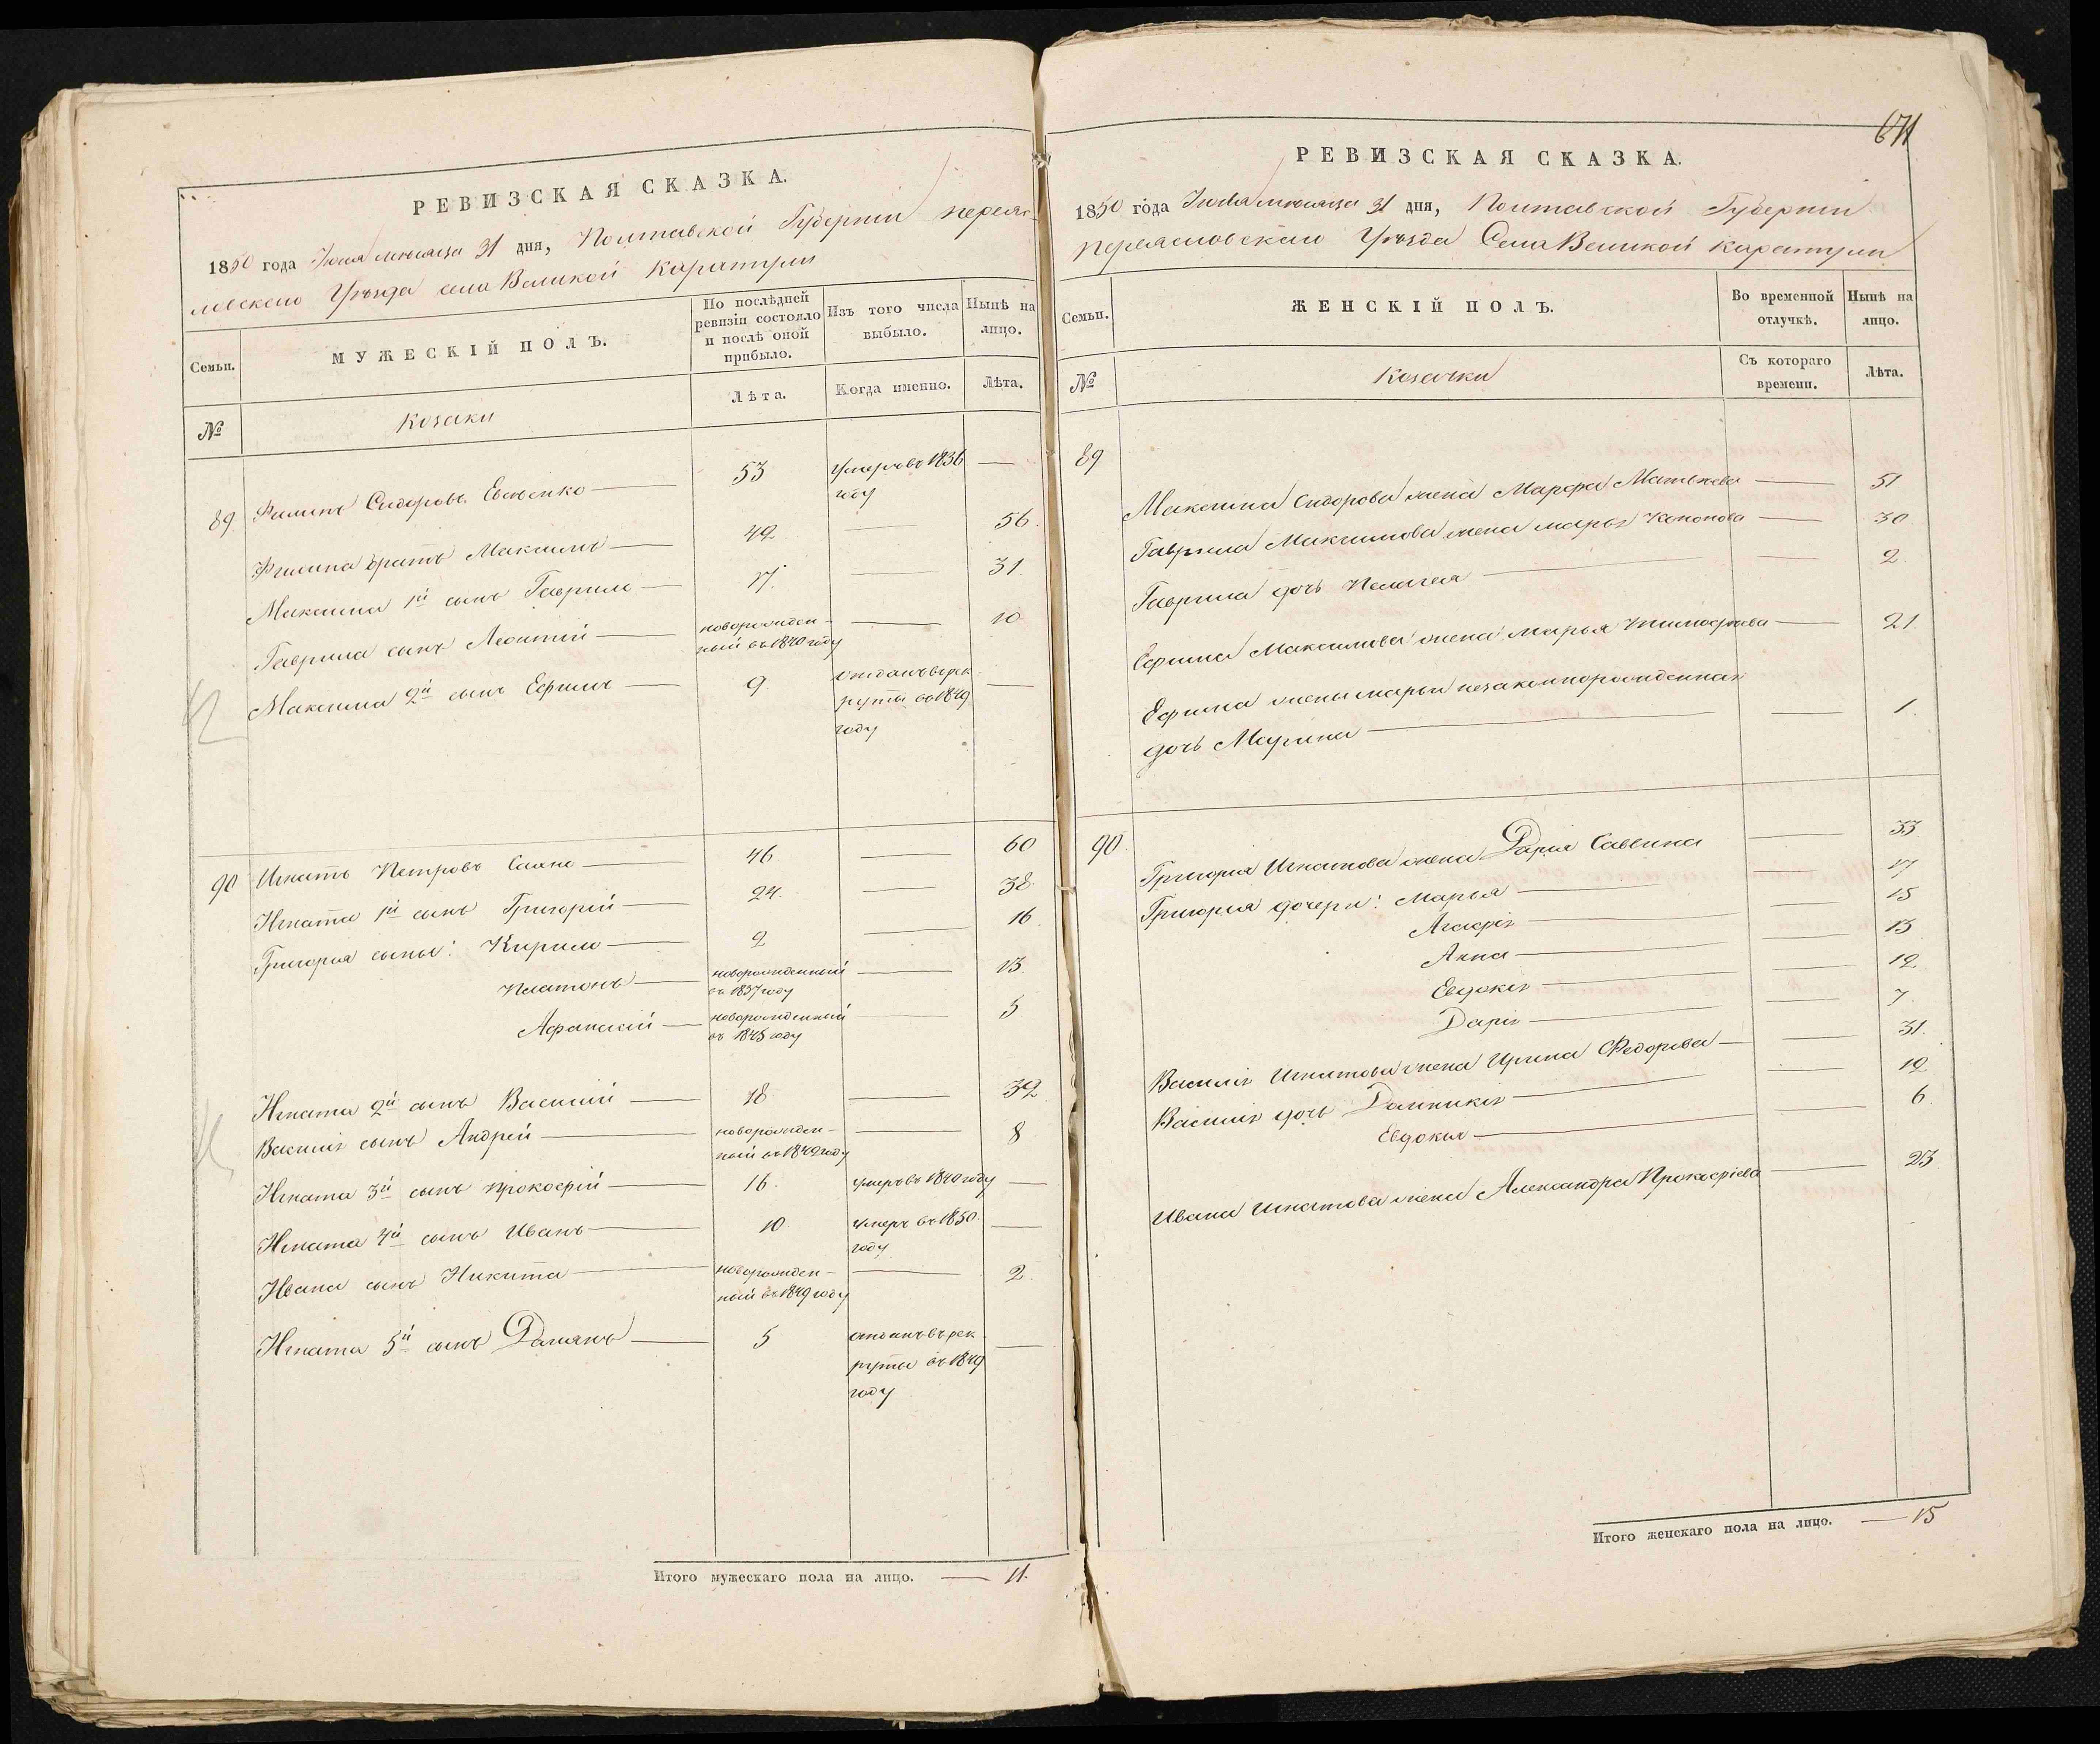 РЕВИЗСКАЯ СКАЗКА.
1850 года Июля месяца 31 дня, Полтавской Губернии переяс-
ловского Уѣзда села Великой Каратули
Семьи.
МУЖЕСКІЙ ПОЛЪ.
По послѣдней ревизіи состояло и послѣ оной прибыло.
Изъ того числа выбыло.
Нынѣ на лицо.
№
Козаки
Лѣта.
Когда именно.
Лѣта.
89 Филипъ Сидоровъ 53 Умеръ въ 1836 году —
Филипа братъ Максимъ 42 — 56.
Максима 1й сынъ Гаврило 17. — 31.
Гаврила сынъ Леонтій новорожден-
ный въ 1840 году — 10
Максима 2й сынъ Ефимъ 9. отданъ въ рек
руты въ 1849
году —
90 Игнатъ Петровъ 46 — 60
Игната 1й сынъ Григорій 24. — 38.
Григорія сыны: Кирило 2 — 16.
Платонъ новорожденный
въ 1837 году — 13.
Афанасій новорожденный
въ 1845 году — 5
Игната 2й сынъ Василій 18 — 32
Василія сынъ Андрей новорожден-
ный въ 1842 году — 8
Игната 3й сынъ Прокофій 16. умеръ въ 1840 году —
Игната 4й сынъ Иванъ 10. умеръ въ 1850.
году —
Ивана сынъ Никита новорожден-
ный въ 1849 году — 2.
Игната 5й сынъ Дамянъ 5 отданъ въ рек
руты въ 1849
году —
Итого мужескаго пола на лицо. — 11.
671
РЕВИЗСКАЯ СКАЗКА.
1850 года Июля месяца 31 дня, Полтавской Губернии
переясловского Уѣзда Села Великой Каратули
Семьи.
ЖЕНСКІЙ ПОЛЪ.
Во временной отлучкѣ.
Нынѣ на лицо.
№
Козачки
Съ котораго времени.
Лѣта.
89
Максима Сидорова жена Марфа Матвѣева — 51
Гаврила Максимова жена Марья — 30
Гаврила дочь Пелагея — 2.
Ефима Максимова жена Марья Тимофѣева — 21.
Ефима жены Марьи незаконнорожденная
дочь Марина — 1.
90.
Григорія Игнатова жена Дарія Саввина — 33
Григорія дочери: Марья — 17
Агафія — 15
Анна — 13
Евдокія — 12
Дарія — 7.
Василія Игнатова жена Ирина Федорова — 31.
Василія дочь Домникія — 12
Евдокия — 6.
Ивана Игнатова жена Александра Прокофіева — 23
Итого женскаго пола на лицо. — 15